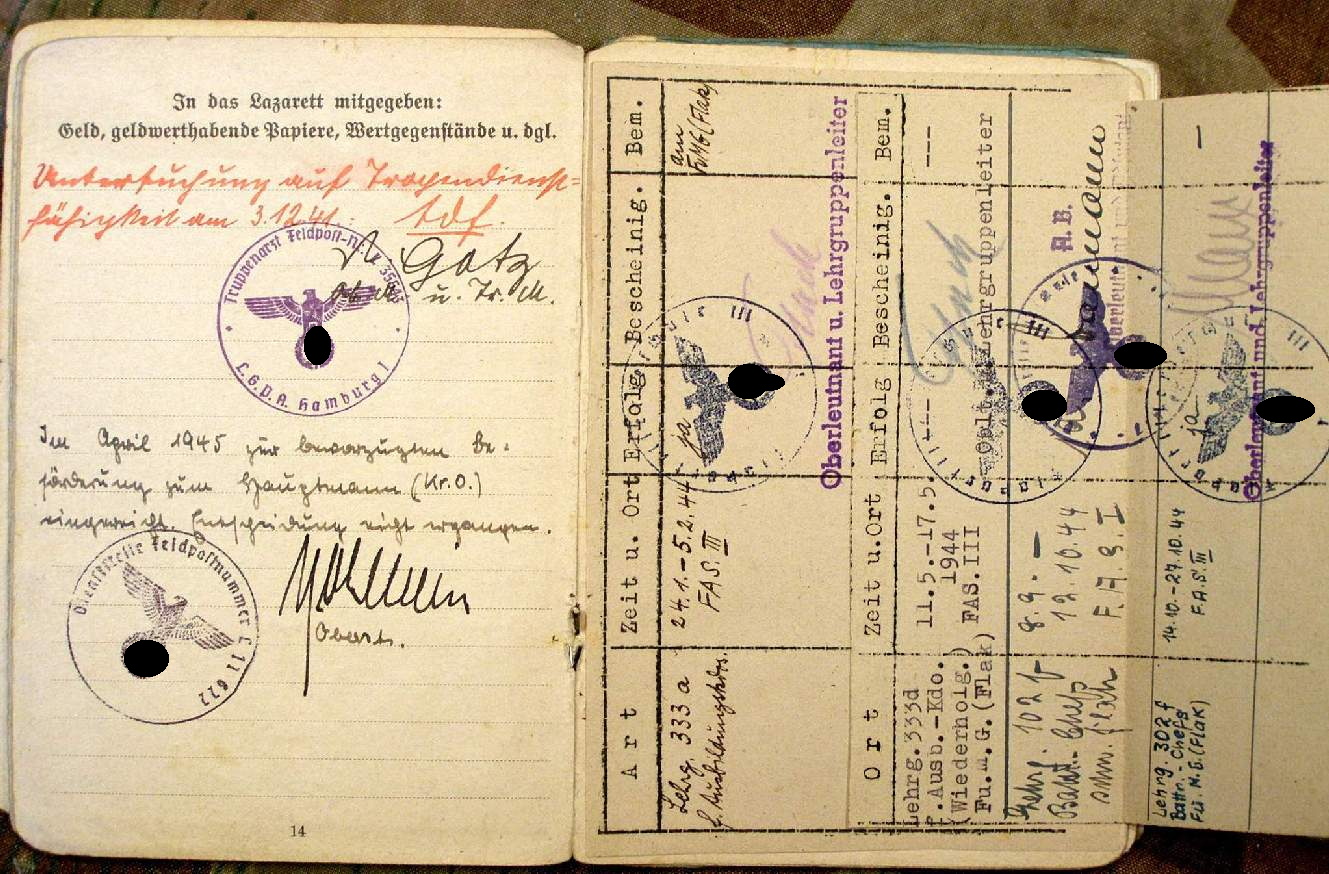 In das Lazarett mitgegeben:
Geld, geldwerthabende Papiere, Wertgegenstände u. dgl.
Untersuchung auf Tropendienst=
fähigkeit am 3.12.41.: tdf.
Götz
u. Tr. A.
Truppenarzt Feldpost-Nr.
L.G.P.A. Hamburg 1
Im April 1945 zur bevorzugten Be-
förderung zum Hauptmann (Kr.O.)
eingereicht. Entscheidung nicht ergangen.
Dienststelle Feldpostnummer L 11622
Oberst.
14
Art Zeit u. Ort Erfolg Bescheinig. Bem.
Lehrg. 333 a 24.1.-5.2.44 ja am
f. Ausbildungskdos. FAS. III (Flak)
Oberleutnant u. Lehrgruppenleiter
Ort Zeit u.Ort Erfolg Bescheinig. Bem.
Lehrg.333d 11.5.-17.5. --- ---
f.Ausb.-Kdo. 1944
(Wiederholg.) FAS.III
Fu.m.G.(Flak) Lehrgruppenleiter
Lehrg. 102 f 8.9.- A.B.
Battr.-Chefs 12.10.44
F.A.S. I
Lehrg. 302 f 14.10.-27.10.44 ja –
Battr.-Chefs F.A.S. III
Fü. M. G. (Flak)
Oberleutnant und Lehrgruppenleiter